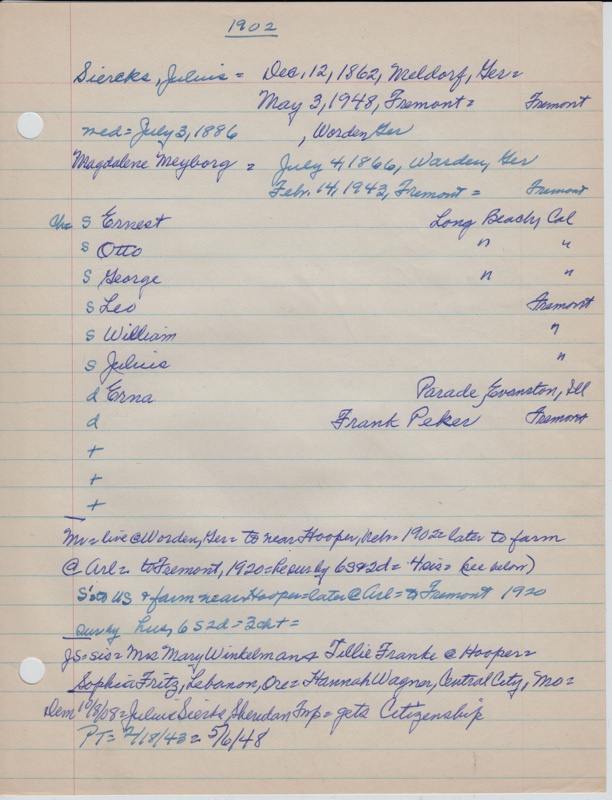 1902
Siercks, Julius = Dec, 12, 1862, Meldorf, Ger =
May 3, 1948, Fremont = Fremont
med = July 3, 1886 , Worden Ger
Magdalene Meyborg = July 4, 1866, Warden, Ger
Febr. 14, 1943, Fremont = Fremont
Ch = S Ernest Long Beach, Cal
S Otto " "
S George " "
S Leo Fremont
S William "
S Julius "
d Erna Parade Evanston, Ill
d Frank Peker Fremont
+
+
+
Mv = live @ Worden, Ger = to near Hooper, Nebr = 1902 = later to farm
@ Arl = to Fremont, 1920 = he sur by 6S & 2d = 4 sis = (see below)
S's to US & farm near Hooper = later @ Arl = to Fremont 1920
sur by hus, 6 S 2d = 3 ch + =
JS = sis = Mrs Mary Winkelman & Tillie Franke @ Hooper =
Sophia Fritz, Lebanon, Ore = Hannah Wagner, Central City, Mo =
Dem 10/8/08 = Julius Sierks, Sheridan Tmp = gets Citizenship
PT = 2/18/43 = 5/6/48